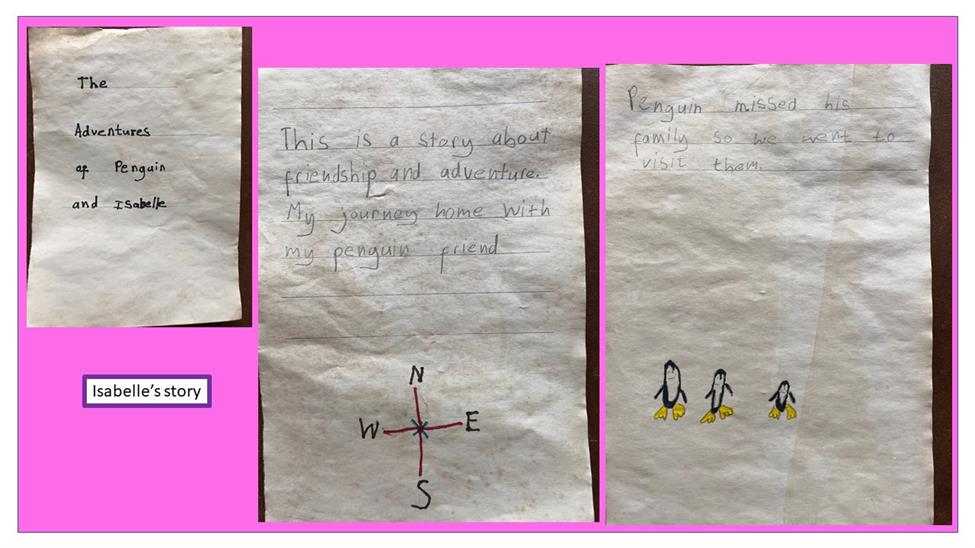 The
Adventures
of Penguin
and Isabelle
Isabelle's story
This is a story about
friendship and adventure.
My journey home with
my penguin friend
N
W E
S
Penguin missed his
family so we went to
visit them.